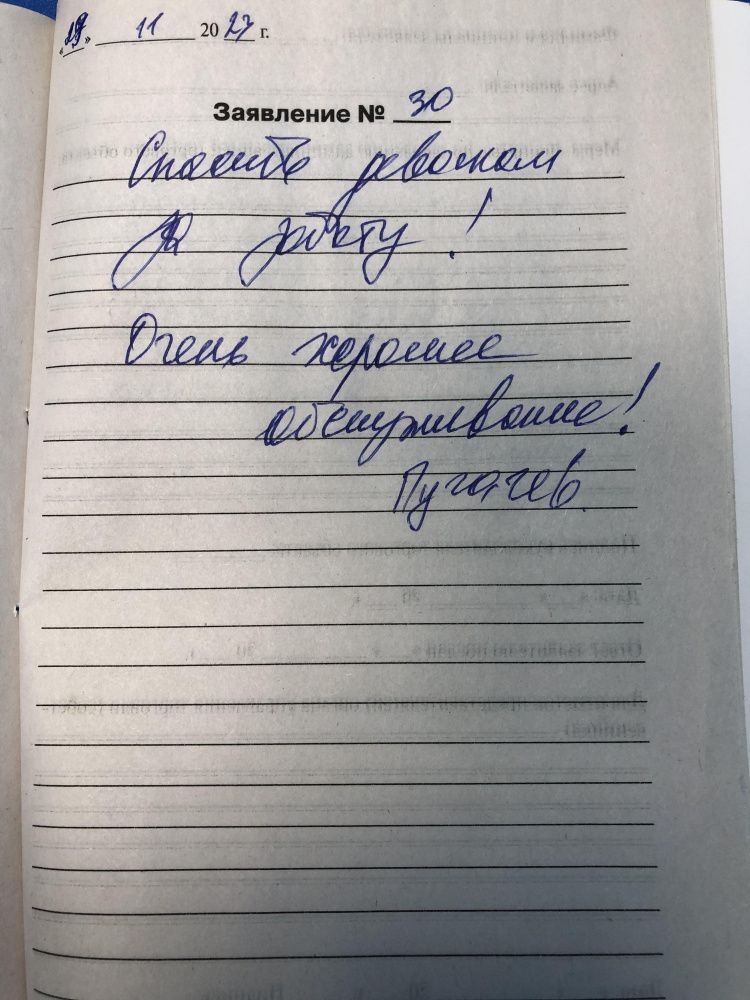 «19» 11 2027 г.
Заявление № 30
Спасибо девочкам
за работу!
Очень хорошее
обслуживание!
Пугачев.